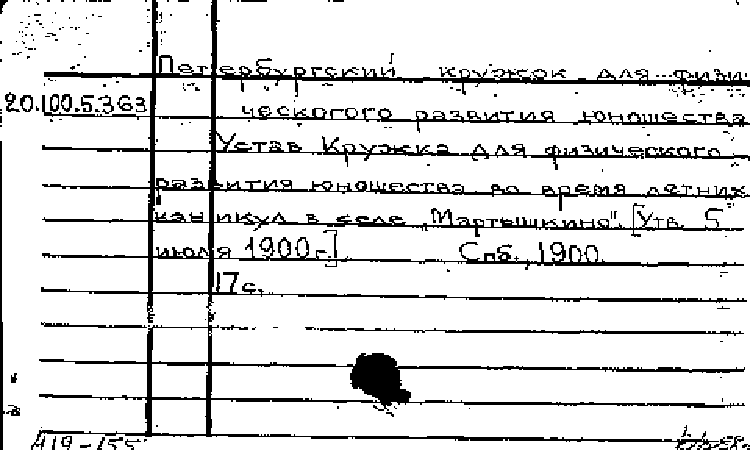 Петербургский кружок для физи
20.100.5.363 ческогого развития юношества
Устав Кружка для физического
развития юношества во время летних
каникул в селе „Мартышкино". [Утв. 5
июля 1900 г.] Спб., 1900.
17 с.
А19-155